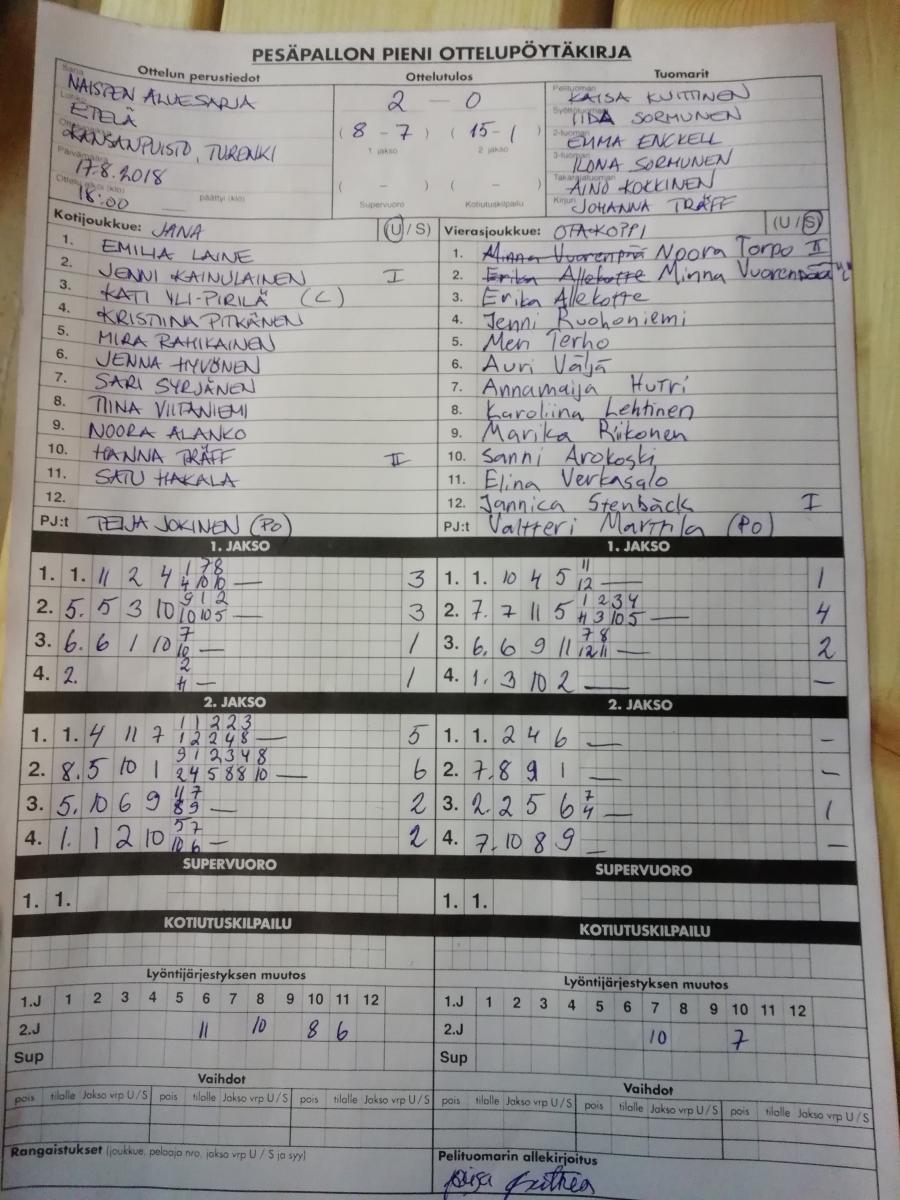 PESÄPALLON PIENI OTTELUPÖYTÄKIRJA
Ottelun perustiedot Ottelutulos Tuomarit
Sarja NAISTEN ALUESARJA 2 - 0 Pelituomari KAISA KUITTINEN
Lohko ETELÄ Syöttötuomari IIDA SORMUNEN
KANSANPUISTO, TURENKI (8 - 7) (15 - 1) 2-tuomari EMMA ENCKELL
1. jakso 2. jakso 3-tuomari ILONA SORMUNEN
Päivämäärä 17.8.2018 ( - ) ( - ) Takarajatuomari AINO KOKKINEN
Ottelu alkoi (klo) 18:00 päättyi (klo) Supervuoro Kotiutuskilpailu Kirjuri JOHANNA TRÄFF
Kotijoukkue: JANA (U / S) Vierasjoukkue: OTA-KOPPI (U / S)
1. EMILIA LAINE 1. Minna Vuorenpää Noora Torpo II
2. JENNI KAINULAINEN I 2. Erika Allekotte Minna Vuorenpää
3. KATI YLI-PIRILÄ (C) 3. Erika Allekotte
4. KRISTIINA PITKÄNEN 4. Jenni Ruohoniemi
5. MIRA RAHIKAINEN 5. Meri Terho
6. JENNA HYVÖNEN 6. Auri Väljä
7. SARI SYRJÄNEN 7. Annamaija Hutri
8. TIINA VIITANIEMI 8. Karoliina Lehtinen
9. NOORA ALANKO 9. Marika Riikonen
10. HANNA TRÄFF II 10. Sanni Arokoski
11. SATU HAKALA 11. Elina Verkasalo
12. 12. Jannica Stenbäck I
PJ:t TEIJA JOKINEN (PO) PJ:t Valtteri Marttila (PO)
1. JAKSO 1. JAKSO
1 7 8 11
1. 1. 11 2 4 4 10 10 — 3 1. 1. 10 4 5 12 — 1
9 1 2 1 2 3 4
2. 5. 5 3 10 10 10 5 — 3 2. 7. 7 11 5 11 3 10 5 — 4
7 7 8
3. 6. 6 1 10 10 — 1 3. 6. 6 9 11 12 11 — 2
2
4. 2. 11 — 1 4. 1. 3 10 2 — —
2. JAKSO 2. JAKSO
1 1 2 2 3
1. 1. 4 11 7 1 2 2 4 8 — 5 1. 1. 2 4 6 — —
9 1 2 3 4 8
2. 8. 5 10 1 2 4 5 8 8 10 — 6 2. 7. 8 9 1 — —
11 7 7
3. 5. 10 6 9 8 9 — 2 3. 2. 2 5 6 4 — 1
5 7
4. 1. 1 2 10 10 6 — 2 4. 7. 10 8 9 — —
SUPERVUORO SUPERVUORO
1. 1. 1. 1.
KOTIUTUSKILPAILU KOTIUTUSKILPAILU
Lyöntijärjestyksen muutos Lyöntijärjestyksen muutos
1.J 1 2 3 4 5 6 7 8 9 10 11 12 1.J 1 2 3 4 5 6 7 8 9 10 11 12
2.J 11 10 8 6 2.J 10 7
Sup Sup
Vaihdot Vaihdot
pois tilalle Jakso vrp U / S pois tilalle Jakso vrp U / S pois tilalle Jakso vrp U / S pois tilalle Jakso vrp U / S pois tilalle Jakso vrp U / S pois tilalle Jakso vrp U / S
Rangaistukset (joukkue, pelaaja nro, jakso vrp U / S ja syy) Pelituomarin allekirjoitus